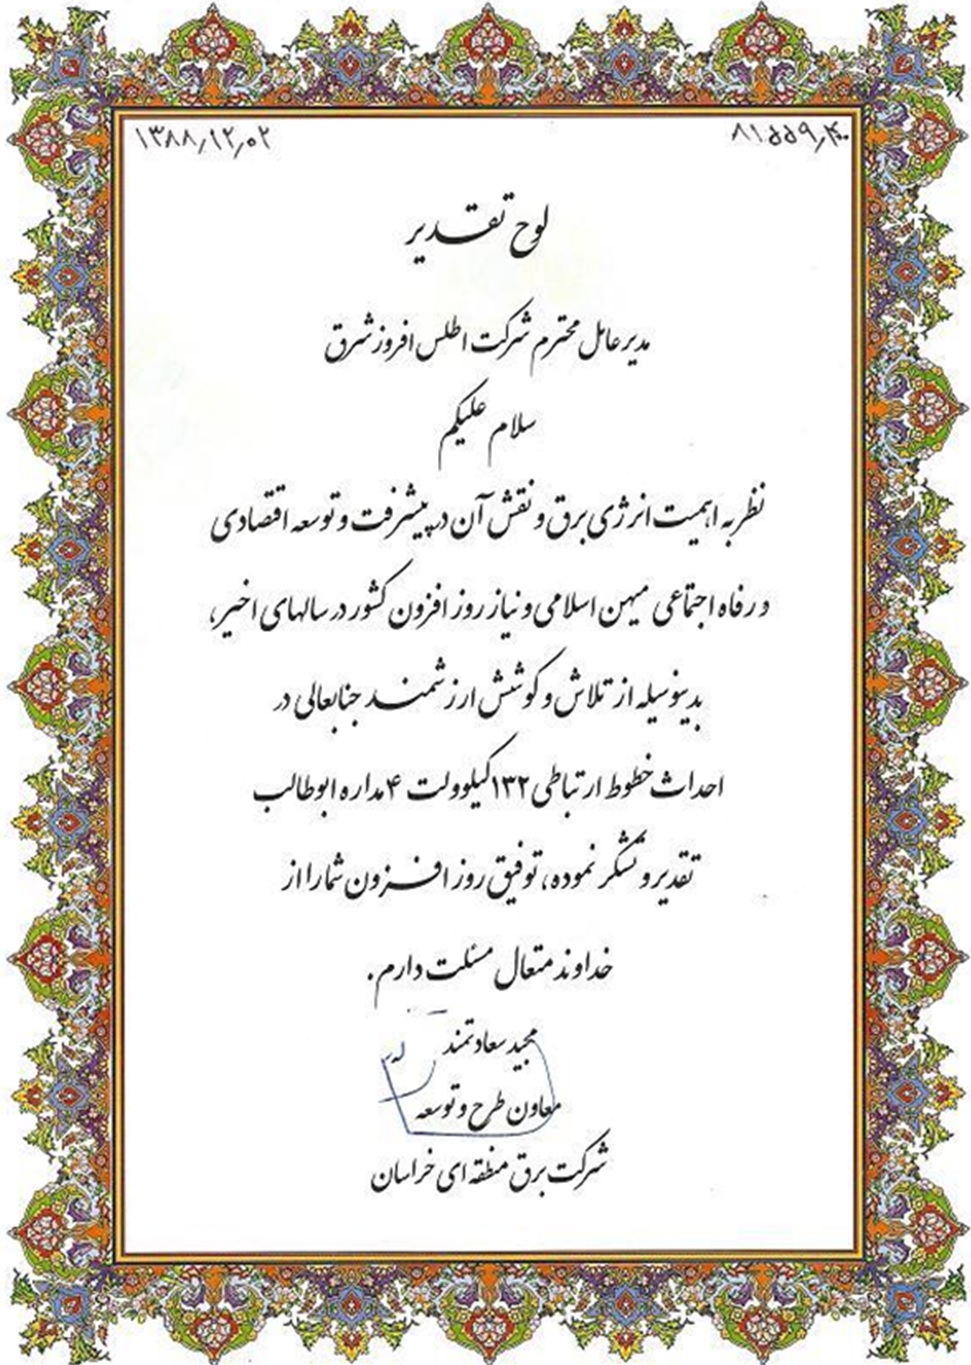 ۱۳۸۸/۱۲/۰۲
لوح تقدیر
مدیر عامل محترم شرکت اطلس افروز شرق
سلام علیکم
نظر به اهمیت انرژی برق و نقش آن در پیشرفت و توسعه اقتصادی
و رفاه اجتماعی میهن اسلامی و نیاز روز افزون کشور در سالهای اخیر،
بدینوسیله از تلاش و کوشش ارزشمند جنابعالی در
احداث خطوط ارتباطی ۱۳۲ کیلوولت ۴ مداره ابوطالب
تقدیر و تشکر نموده، توفیق روز افزون شما را از
خداوند متعال مسئلت دارم.
مجید سعادتمند
معاون طرح و توسعه
شرکت برق منطقه ای خراسان